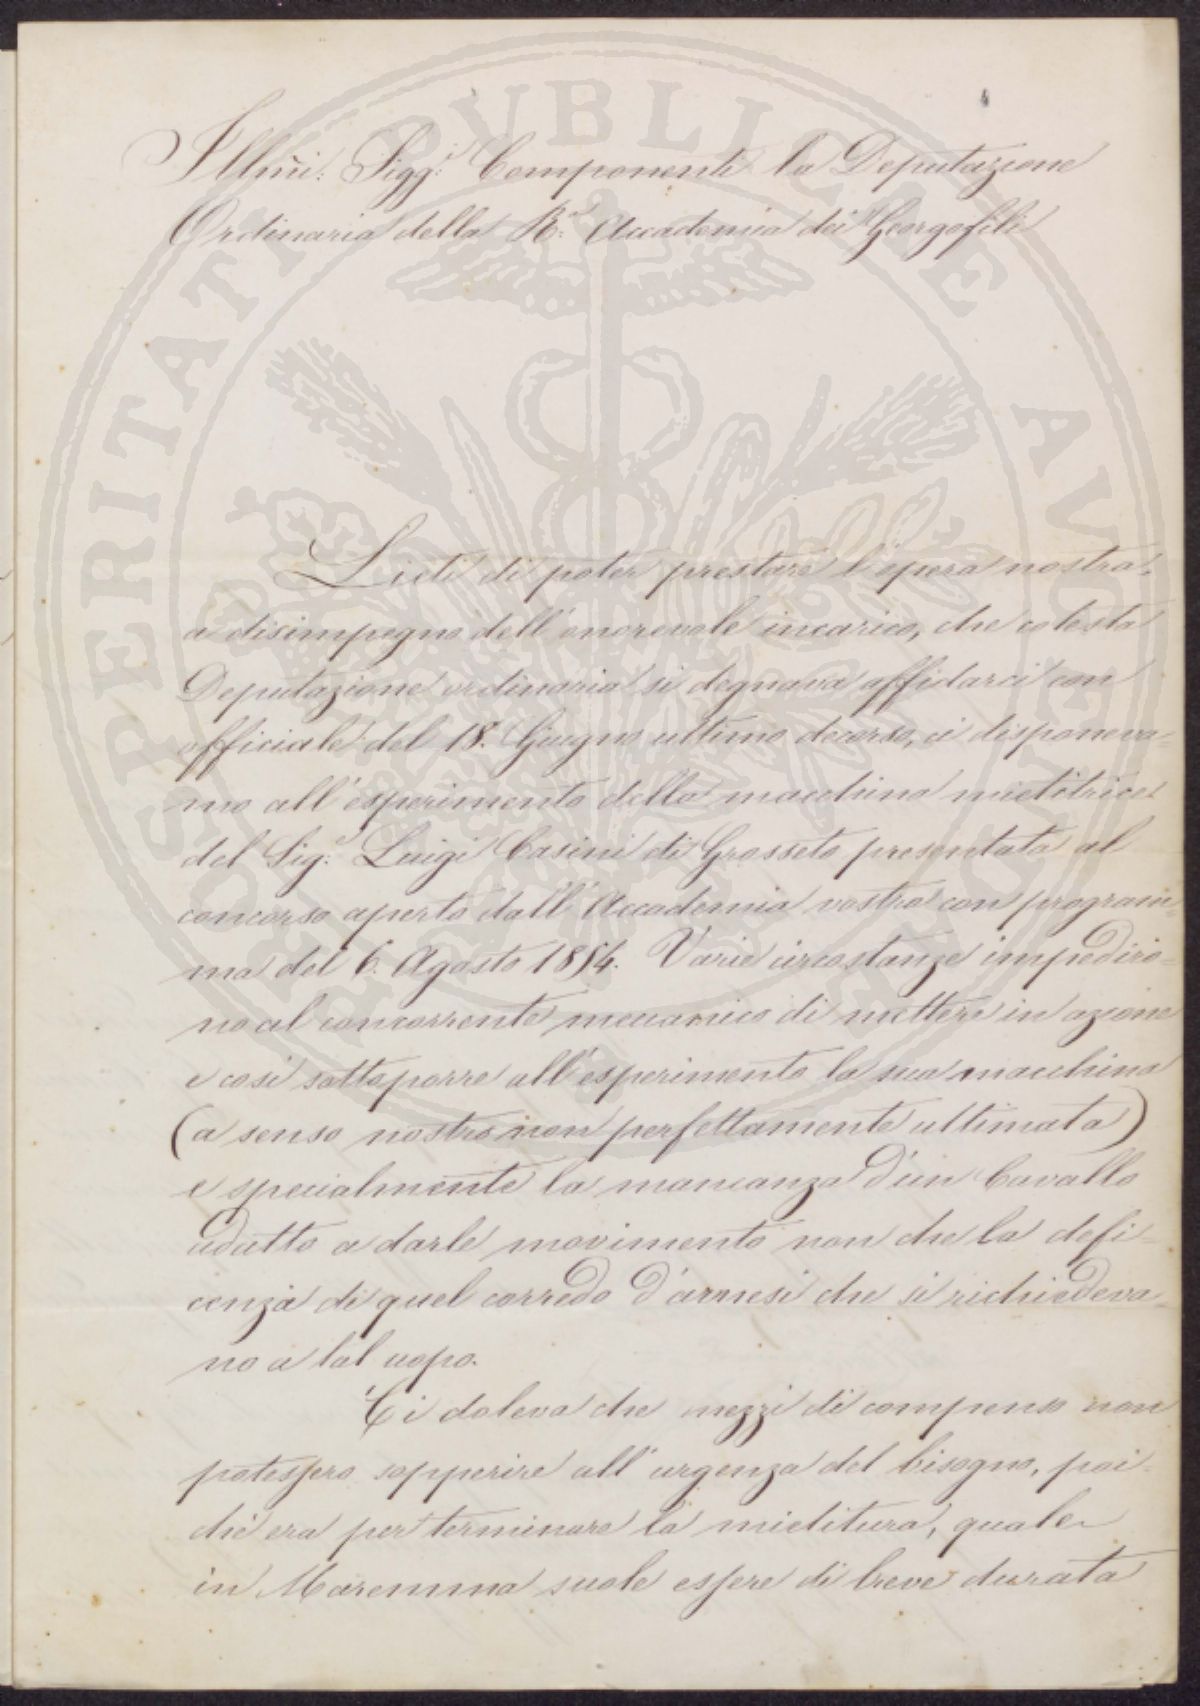 Illm̃i: Sigg:ri Componenti la Deputazione
Ordinaria della R:a Accademia dei Georgofili
Lieti di poter prestare l'opera nostra,
a disimpegno dell'onorevole incarico, che cotesta
Deputazione ordinaria si degnava affidarci con
officiale del 18. Giugno ultimo decorso, ci disponeva=
mo all'esperimento della macchina mietitrice
del Sig:r Luigi Casini di Grosseto presentata al
concorso aperto dall'Accademia vostra con program=
ma del 6. Agosto 1854. Varie circostanze impediro=
no al concorrente meccanico di mettere in azione
e così sottoporre all'esperimento la sua macchina
(a senso nostro non perfettamente ultimata)
e specialmente la mancanza d'un Cavallo
adatto a darle movimento non che la defi=
cenza di quel corredo d'arnesi che si richiedeva=
no a tal uopo.
Ci doleva che mezzi di compenso non
potessero sopperire all'urgenza del bisogno, poi=
chè era per terminare la mietitura, quale
in Maremma suole essere di breve durata
SPERITATI PVBLICAE AVGENDAE